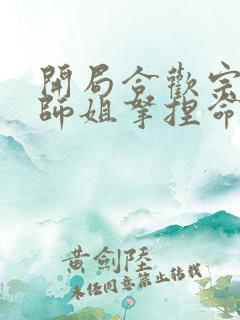 開局合歡宗
師姐拿捏命
黃劍陸
未經同意禁止轉載